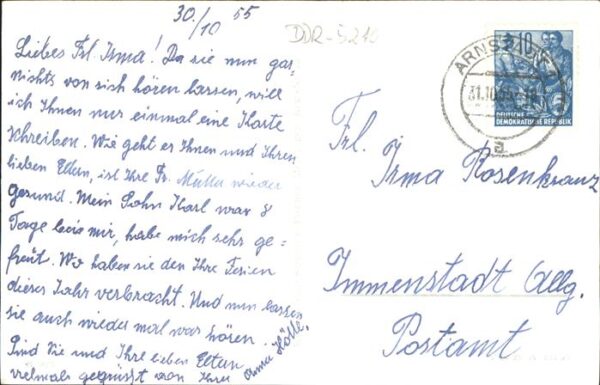 30./10 55
DDR-5210
Liebes Frl. Irma! Da sie nun gar
nichts von sich hören lassen, will
ich Ihnen nur einmal eine Karte
schreiben. Wie geht es Ihnen und Ihren
lieben Eltern, ist Ihre Fr. Mutter wieder
gesund. Mein Sohn Karl war 8
Tage bei mir, habe mich sehr ge=
freut. Wo haben sie den Ihre Ferien
dieses Jahr verbracht. Und nun lassen
sie auch wieder mal was hören.
Sind Sie und Ihre lieben Eltern
vielmals gegrüsst von Ihrer
Anna
10
DEUTSCHE
DEMOKRATISCHE REPUBLIK
31.10.55
a
Frl.
Irma Rosenkranz
Immenstadt Allg.
Postamt.